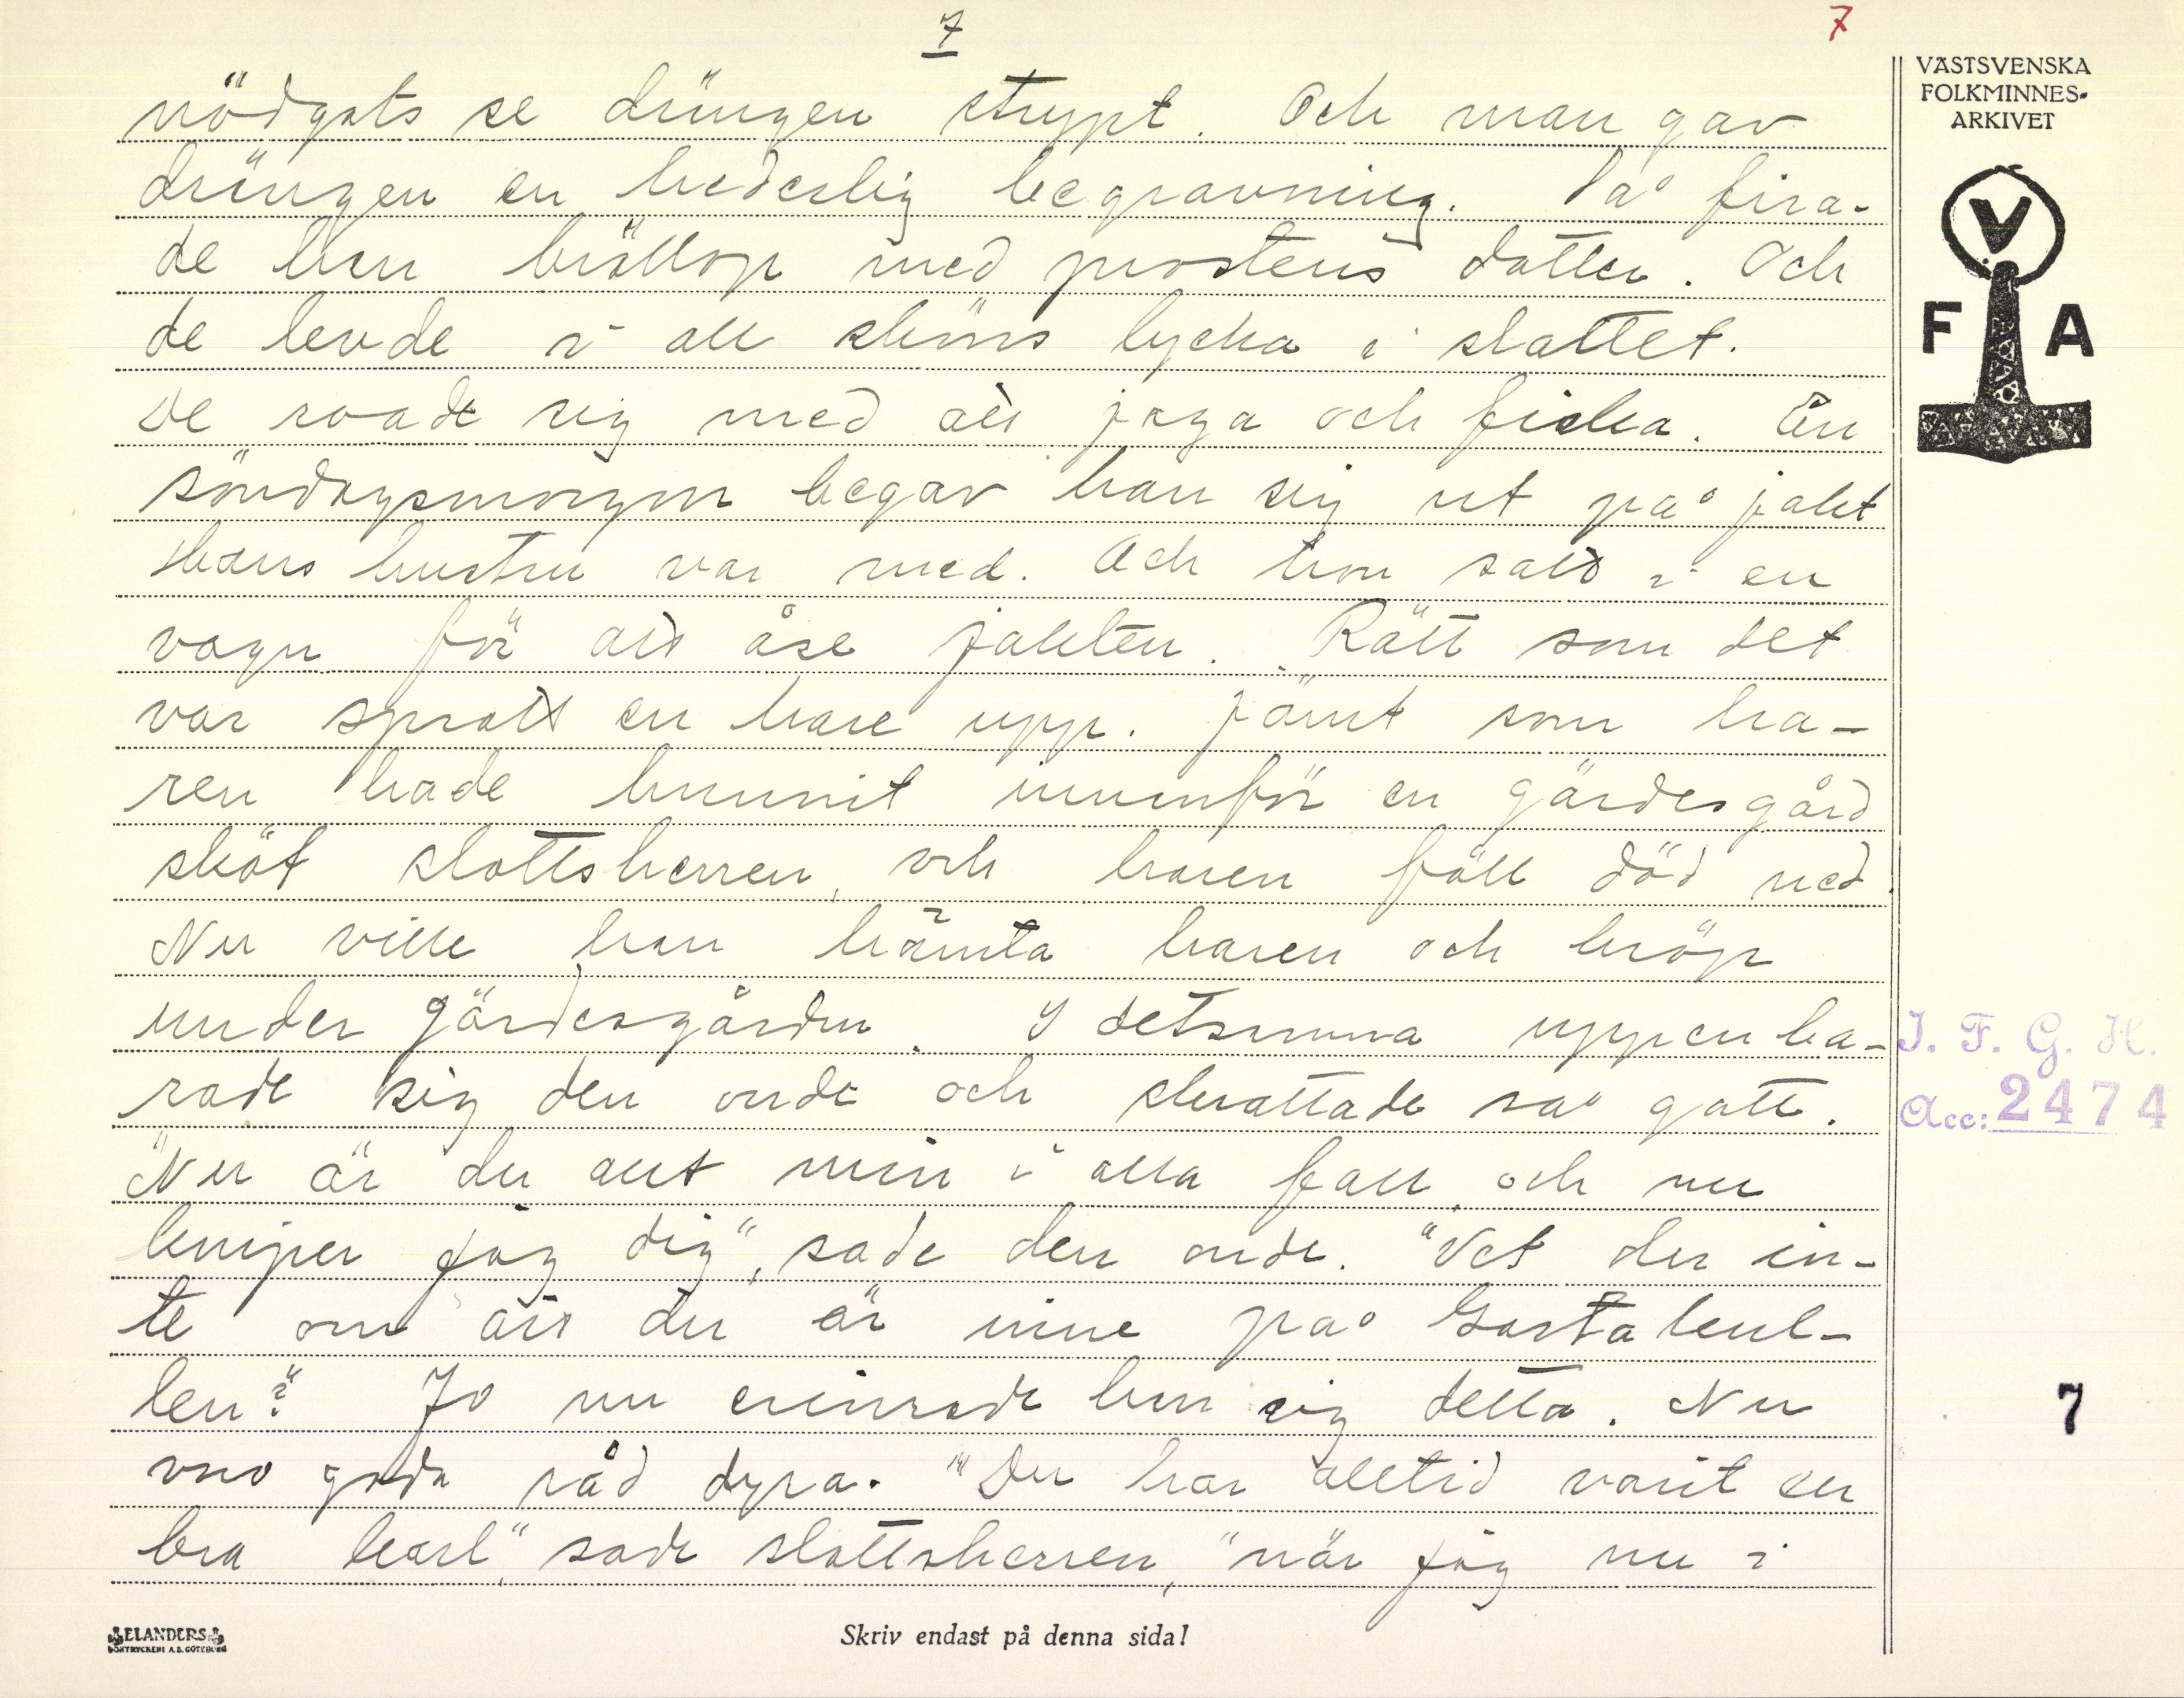 7
7
VÄSTSVENSKA
FOLKMINNES-
ARKIVET
V
F A
nödgats se drängen strypt. Och man gav
drängen en hederlig begravning. Så fira-
de han bröllop med prostens dotter. Och
de levde i all sköns lycka i slottet.
De roade sig med att jaga och fiska. En
söndagsmorgon begav han sig ut på jakt
Hans hustru var med. Och hon satt i en
vagn för att åse jakten. Rätt som det
var spratt en hare upp. Jämt som ha-
ren hade hunnit innanför en gärdesgård
sköt slottsherren, och haren föll död ned.
Nu ville han hämta haren och kröp
under gärdesgården. I detsamma uppenba-
rade sig den onde och skrattade så gott.
"Nu är du allt min i alla fall, och nu
kniper jag dig", sade den onde. "Vet du in-
te om att du är inne på Gastakul-
len?" Jo nu erinrade han sig detta. Nu
voro goda råd dyra. "Du har alltid varit en
bra karl", sade slottsherren, "när jag nu i
I. F. G. H.
Acc: 2474
7
ELANDERS
BOKTRYCKERI A.B. GÖTEBORG
Skriv endast på denna sida!